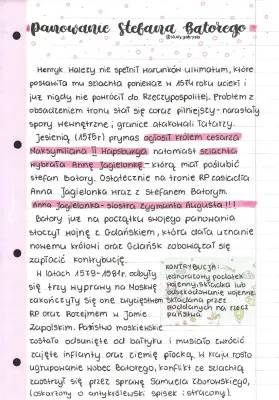 Panowanie Stefana Batorego
Henryk Walezy nie spełnił warunków ultimatum, które
postawiła mu szlachta ponieważ w 1574 roku uciekł i
już nigdy nie powrócił do Rzeczypospolitej. Problem z
obsadzeniem tronu stał się coraz pilniejszy - narastały
spory wewnętrzne i granice atakowali Tatarzy.
Jesienią (1575r) prymas ogłosił królem cesarza
Maksymiliana II Hapsburga natomiast szlachta
wybrała Annę Jagielonkę - którą miał poślubić
Stefan Batory. Ostatecznie na tronie RP zasiadła
Anna Jagielonka wraz z Stefanem Batorym.
Anna Jagielonka - siostra Zygmunta Augusta!!!
Batory już na początku swojego panowania
stoczył wojnę z Gdańskiem, która dała uznanie
nowemu królowi oraz Gdańsk zobowiązał się
zapłacić kontrybucję.
W latach 1579-1581r. odbyły
się trzy wyprawy na Moskwę
zakończyły się one zwycięstwem
RP oraz Rozejmem w Jamie
Zapolskim. Państwo moskiewskie
KONTRYBUCJA:
jednorazowy podatek
wojenny, składka lub
odszkodowanie wojenne
składana przez
podbitych na rzecz
państwa
zostało odsunięte od bałtyku i musiało zwrócić
zajęte inflanty oraz ziemię płocką. W kraju rosło
ugrupowanie wobec Batorego, konflikt ze szlachtą
zaostrzył się przez sprawę Samuela Zborowskiego,
(oskarżony o antykrólewski spisek i stracony).